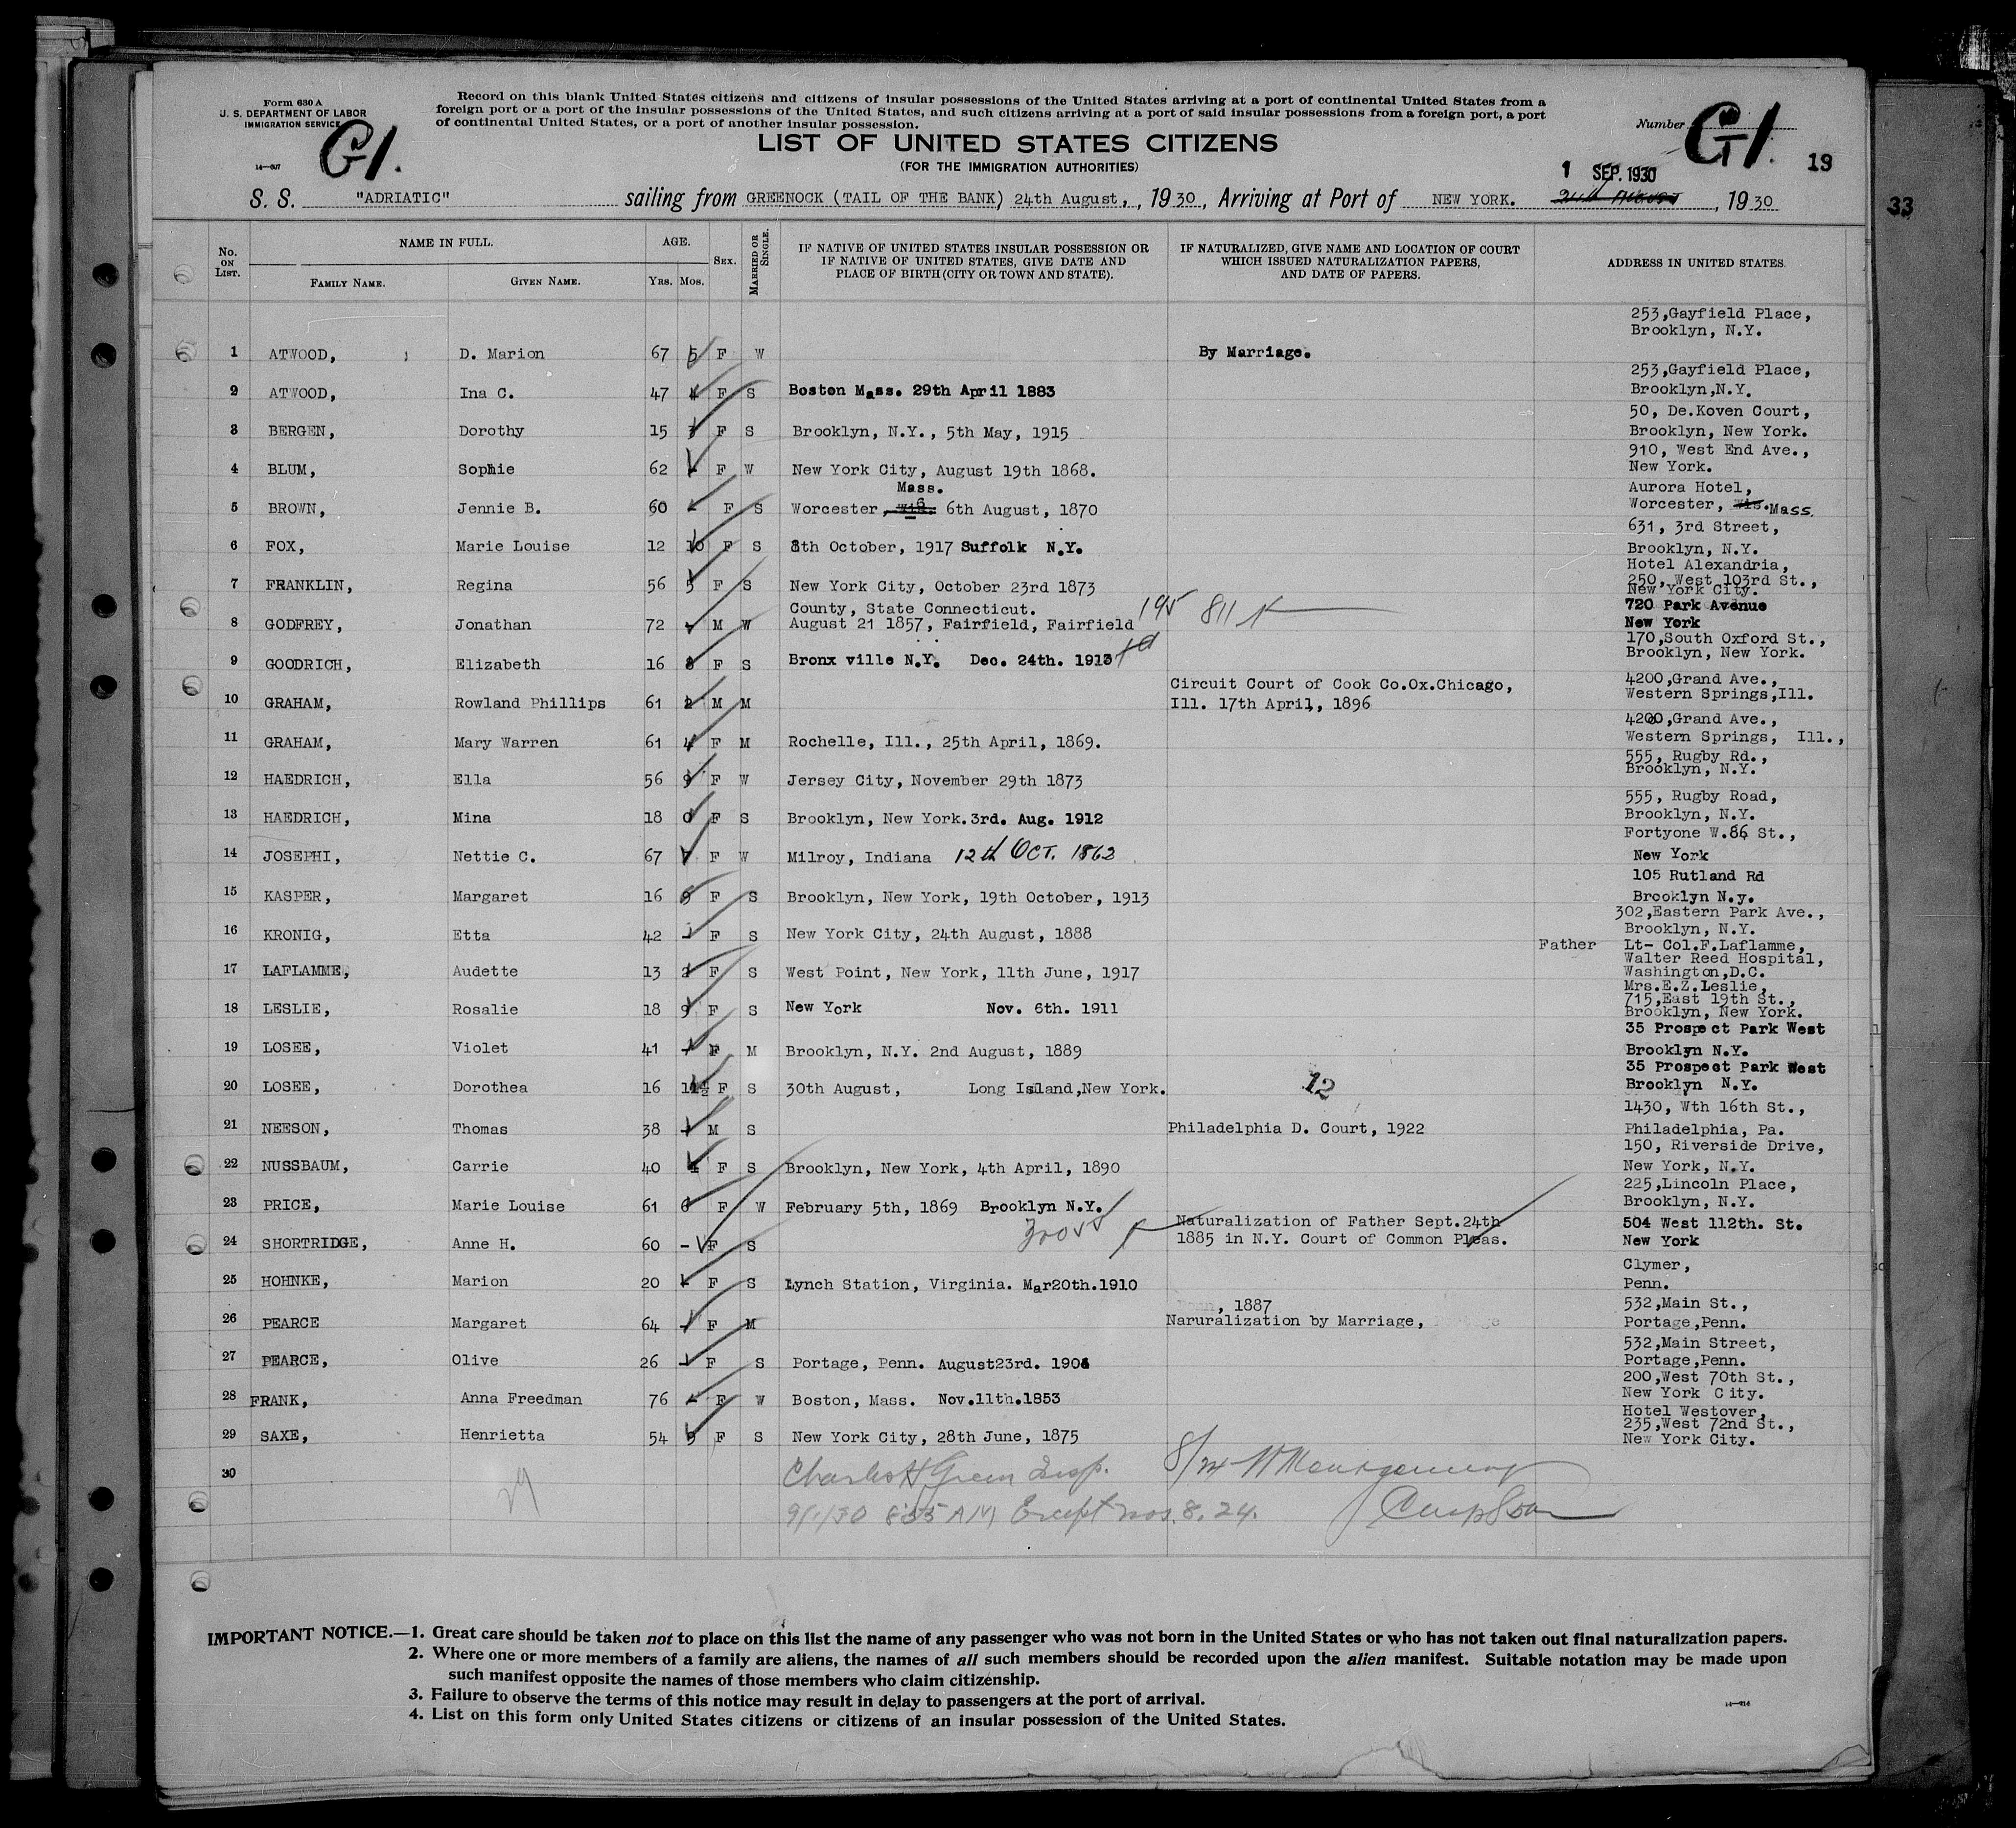 Form 630 A
U. S. DEPARTMENT OF LABOR
IMMIGRATION SERVICE
G1.
14—607
Record on this blank United States citizens and citizens of insular possessions of the United States arriving at a port of continental United States from a
foreign port or a port of the insular possessions of the United States, and such citizens arriving at a port of said insular possessions from a foreign port, a port
of continental United States, or a port of another insular possession.
LIST OF UNITED STATES CITIZENS
(FOR THE IMMIGRATION AUTHORITIES)
Number G1. 19
1 SEP. 1930
S. S. "ADRIATIC" sailing from GREENOCK (TAIL OF THE BANK) 24th August, , 1930, Arriving at Port of NEW YORK. , 1930
33
No. ON LIST. NAME IN FULL. FAMILY NAME. GIVEN NAME. AGE. YRS. MOS. SEX. MARRIED OR SINGLE. IF NATIVE OF UNITED STATES INSULAR POSSESSION OR IF NATIVE OF UNITED STATES, GIVE DATE AND PLACE OF BIRTH (CITY OR TOWN AND STATE). IF NATURALIZED, GIVE NAME AND LOCATION OF COURT WHICH ISSUED NATURALIZATION PAPERS, AND DATE OF PAPERS. ADDRESS IN UNITED STATES.
253,Gayfield Place,
Brooklyn, N.Y.
1 ATWOOD, D. Marion 67 5 F W By Marriage.
253,Gayfield Place,
2 ATWOOD, Ina C. 47 4 F S Boston Mass. 29th April 1883 Brooklyn,N.Y.
50, De.Koven Court,
3 BERGEN, Dorothy 15 3 F S Brooklyn, N.Y., 5th May, 1915 Brooklyn, New York.
910, West End Ave.,
4 BLUM, Sophie 62 - F W New York City, August 19th 1868. New York.
Mass. Aurora Hotel,
5 BROWN, Jennie B. 60 - F S Worcester, Wis. 6th August, 1870 Worcester, Wis. Mass.
631, 3rd Street,
6 FOX, Marie Louise 12 10 F S 8th October, 1917 Suffolk N.Y. Brooklyn, N.Y.
Hotel Alexandria,
7 FRANKLIN, Regina 56 5 F S New York City, October 23rd 1873 250, West 103rd St.,
New York City.
County, State Connecticut. 195 811 720 Park Avenue
8 GODFREY, Jonathan 72 - M W August 21 1857, Fairfield, Fairfield New York
170,South Oxford St.,
9 GOODRICH, Elizabeth 16 8 F S Bronx ville N.Y. Dec. 24th. 1913 Brooklyn, New York.
Circuit Court of Cook Co.Ox.Chicago, 4200,Grand Ave.,
10 GRAHAM, Rowland Phillips 61 2 M M Ill. 17th April, 1896 Western Springs,Ill.
4200,Grand Ave.,
11 GRAHAM, Mary Warren 61 4 F M Rochelle, Ill., 25th April, 1869. Western Springs, Ill.,
555, Rugby Rd.,
12 HAEDRICH, Ella 56 9 F W Jersey City, November 29th 1873 Brooklyn, N.Y.
555, Rugby Road,
13 HAEDRICH, Mina 18 0 F S Brooklyn, New York.3rd. Aug. 1912 Brooklyn, N.Y.
Fortyone W.86 St.,
14 JOSEPHI, Nettie C. 67 7 F W Milroy, Indiana 12th OCT. 1862 New York
105 Rutland Rd
15 KASPER, Margaret 16 9 F S Brooklyn, New York, 19th October, 1913 Brooklyn N.y.
302,Eastern Park Ave.,
16 KRONIG, Etta 42 - F S New York City, 24th August, 1888 Brooklyn, N.Y.
Father Lt- Col.F.Laflamme,
Walter Reed Hospital,
17 LAFLAMME, Audette 13 2 F S West Point, New York, 11th June, 1917 Washington,D.C.
Mrs.E.Z.Leslie,
715,East 19th St.,
18 LESLIE, Rosalie 18 9 F S New York Nov. 6th. 1911 Brooklyn, New York.
35 Prospect Park West
19 LOSEE, Violet 41 - F M Brooklyn, N.Y. 2nd August, 1889 Brooklyn N.Y.
35 Prospect Park West
20 LOSEE, Dorothea 16 11½ F S 30th August, Long Island,New York. 12 Brooklyn N.Y.
1430, Wth 16th St.,
21 NEESON, Thomas 38 - M S Philadelphia D. Court, 1922 Philadelphia, Pa.
150, Riverside Drive,
22 NUSSBAUM, Carrie 40 4 F S Brooklyn, New York, 4th April, 1890 New York, N.Y.
225,Lincoln Place,
23 PRICE, Marie Louise 61 6 F W February 5th, 1869 Brooklyn N.Y. Brooklyn, N.Y.
Naturalization of Father Sept.24th 504 West 112th. St.
24 SHORTRIDGE, Anne H. 60 - F S 1885 in N.Y. Court of Common Pleas. New York
Clymer,
25 HOHNKE, Marion 20 - F S Lynch Station, Virginia. Mar20th.1910 Penn.
, 1887 532,Main St.,
26 PEARCE Margaret 64 - F M Naruralization by Marriage, Portage,Penn.
532,Main Street,
27 PEARCE, Olive 26 - F S Portage, Penn. August23rd. 1904 Portage,Penn.
200,West 70th St.,
28 FRANK, Anna Freedman 76 - F W Boston, Mass. Nov.11th.1853 New York City.
Hotel Westover,
235,West 72nd St.,
29 SAXE, Henrietta 54 9 F S New York City, 28th June, 1875 New York City.
30 Charles H Green Insp. 8/24 Montgomery
9/1/30 8:35 AM Except nos. 8. 24.
IMPORTANT NOTICE.—1. Great care should be taken not to place on this list the name of any passenger who was not born in the United States or who has not taken out final naturalization papers.
2. Where one or more members of a family are aliens, the names of all such members should be recorded upon the alien manifest. Suitable notation may be made upon
such manifest opposite the names of those members who claim citizenship.
3. Failure to observe the terms of this notice may result in delay to passengers at the port of arrival.
4. List on this form only United States citizens or citizens of an insular possession of the United States.